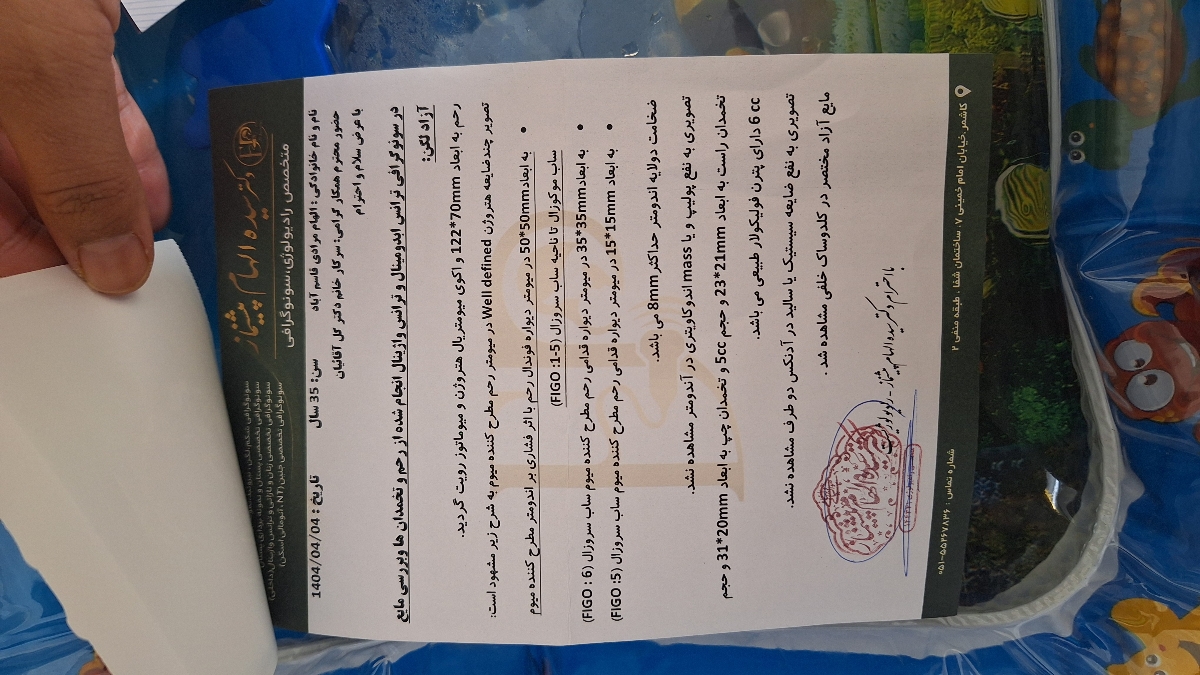 دکتر سیده الهام پیشنماز
متخصص رادیولوژی، سونوگرافی
نام و نام خانوادگی : الهام مرادی قاسم آباد سن: 35 سال تاریخ : 1404/04/04
حضور محترم همکار گرامی: سرکار خانم دکتر گل آقائیان
با عرض سلام و احترام
در سونوگرافی ترانس ابدومینال و ترانس واژینال انجام شده از رحم و تخمدان ها وبررسی مایع
آزاد لگن:
رحم به ابعاد 70mm*122 و اکوی میومتریال هتروژن و میوماتوز رویت گردید.
تصویر چند ضایعه هتروژن Well defined در میومتر رحم مطرح کننده میوم به شرح زیر مشهود است:
• به ابعاد50mm*50 در میومتر دیواره فوندال رحم با اثر فشاری بر اندومتر مطرح کننده میوم
ساب موکوزال تا ناحیه ساب سروزال (FIGO :1-5)
• به ابعاد35mm*35 در میومتر دیواره قدامی رحم مطرح کننده میوم ساب سروزال (FIGO : 6)
• به ابعاد 15mm*15 در میومتر دیواره قدامی رحم مطرح کننده میوم ساب سروزال (FIGO :5)
ضخامت دولایه اندومتر حداکثر 8mm می باشد.
تصویری به نفع پولیپ و یا mass اندوکاویتری در آندومتر مشاهده نشد.
تخمدان راست به ابعاد 21mm*23 و حجم 5cc و تخمدان چپ به ابعاد 20mm*31 و حجم
6 cc دارای پترن فولیکولار طبیعی می باشد.
تصویری به نفع ضایعه سیستیک یا سالید در آدنکس دو طرف مشاهده نشد.
مایع آزاد مختصر در کلدوساک خلفی مشاهده شد.
با احترام دکتر سیده الهام پیشنماز - رادیولوژیست
کاشمر، خیابان امام خمینی ۷، ساختمان شفا ، طبقه منفی ۲
شماره تماس : ۰۵۱-۵۵۲۶۷۸۳۶